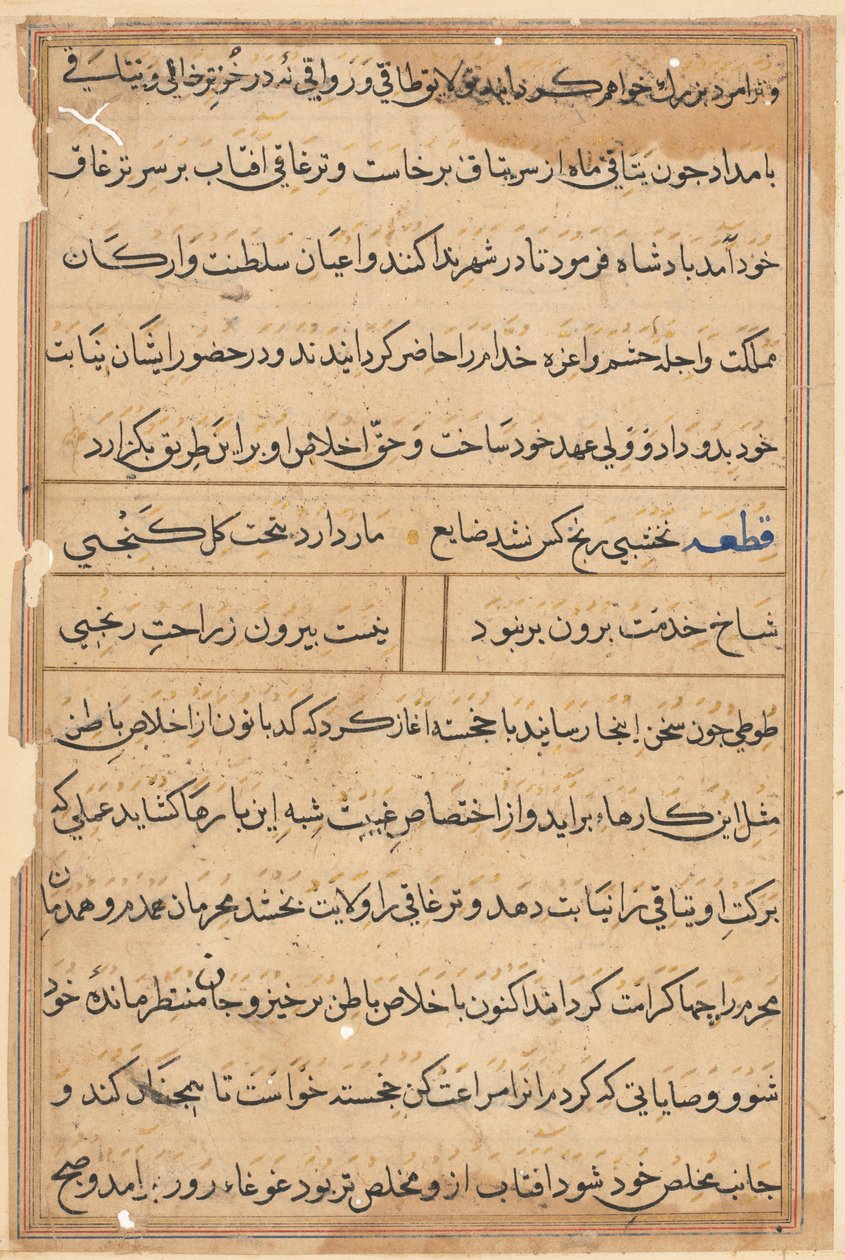 و ترا مرد بزرك خواهم كردانید تو لایق طاقی و رواقی نه در خُورِ ترخاقی و یتاقی
بامداد جون یتاقیِ ماه از سر یتاق برخاست و ترغاقی افتاب بر سر ترغاق
خود آمد بادشاه فرمود تا در شهر ندا كنند و اعیان سلطنت و اركان
مملكت و اجلهٔ حشم و اعزه خدام را حاضر كردانیدند و در حضور ایشان نیابت
خود بدو داد و ولی عهد خود ساخت و حقّ اخلاص او بر این طریق بكزارد
قطعه نخشبی رنج كس نشد ضایع مار دارد بتحت كل كنجی
شاخ خدمت برون بر نبود نیست بیرون ز راحتِ رنجی
طوطی جون سخن اینجا رسانید با خجسته اغاز كرد كه كدبانون از اخلاصِ باطن
مثل این كارها براید و از اختصاصِ غیبت شبهِ این بارها كشاید عملی كه
بركتِ او یتاقی را نیابت دهد و ترغاقی را ولایت بخشد محرمان همدم و همدمان
محرم را چها كرامت كرداند اكنون با خلاص باطن برخیز و جانب منتظر ماندهٔ خود
شو و وصایایی كه كردم انرا مراعت كن خجسته خواست تا همجنان كند و
جانب مخلص خود شود افتاب ازو مخلص تر بود غوغاء روز برامد و صبح